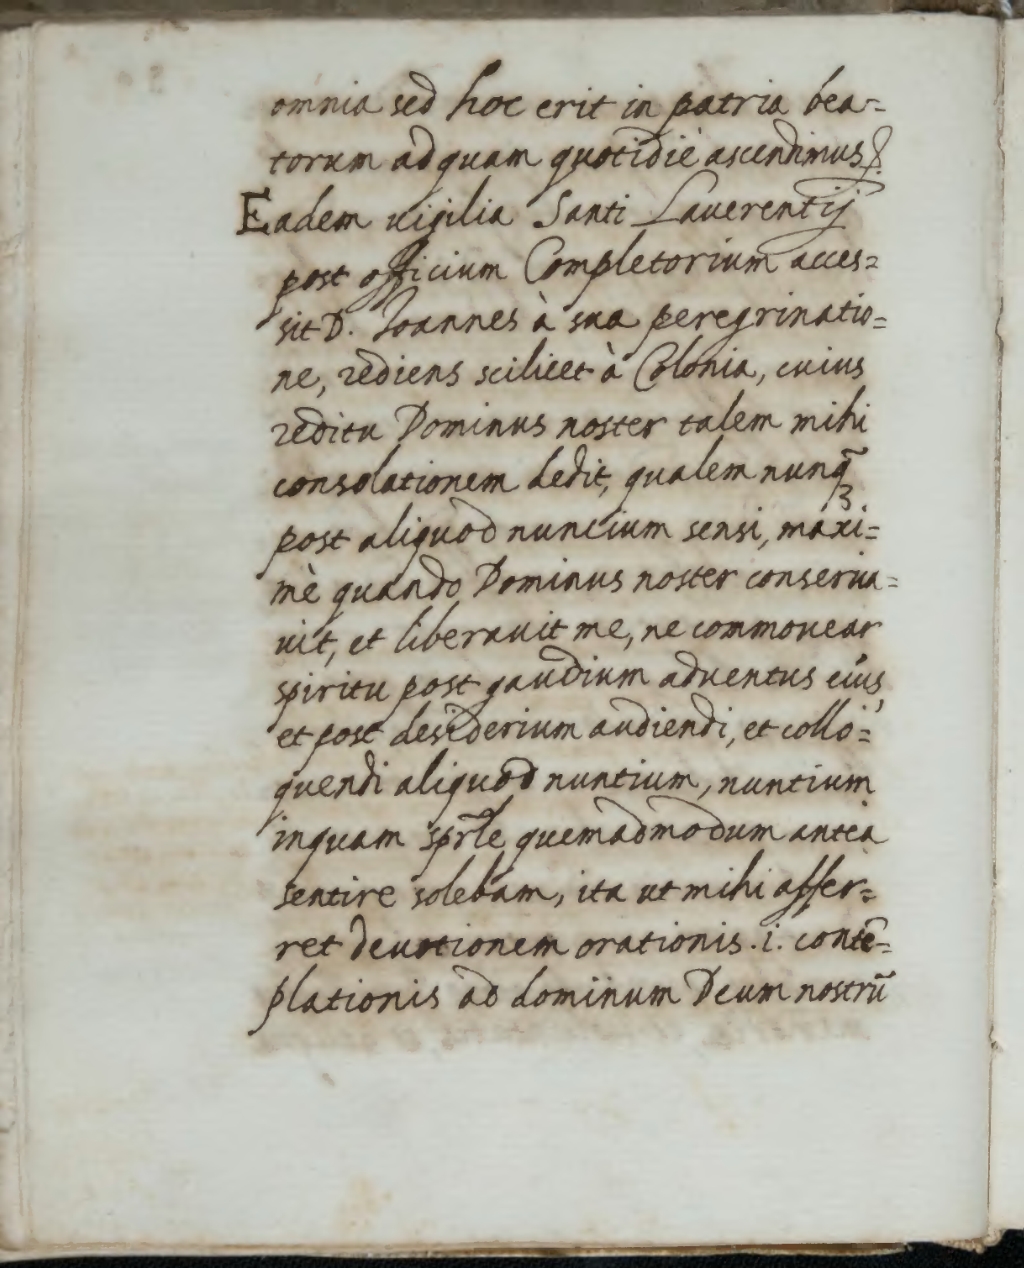 omnia sed hoc erit in patria bea=
torum ad quam quotidiè ascendimus
Eadem uigilia Santi Lauerentij
post officium Completorium acces=
sit D. Ioannes à sua peregrinatio=
ne, rediens scilicet à Colonia, cuius
reditu Dominus noster talem mihi
consolationem dedit, qualem nunq̃
post aliquod nuncium sensi, maxi=
mè quando Dominus noster conserua=
uit, et liberauit me, ne commouear
spiritu post gaudium aduentus eius
et post desiderium audiendi, et collo=
quendi aliquod nuntium, nuntium
inquam sprle quemadmodum antea
sentire solebam, ita ut mihi affer=
ret deuotionem orationis .i. contē=
plationis ad dominum Deum nostrū